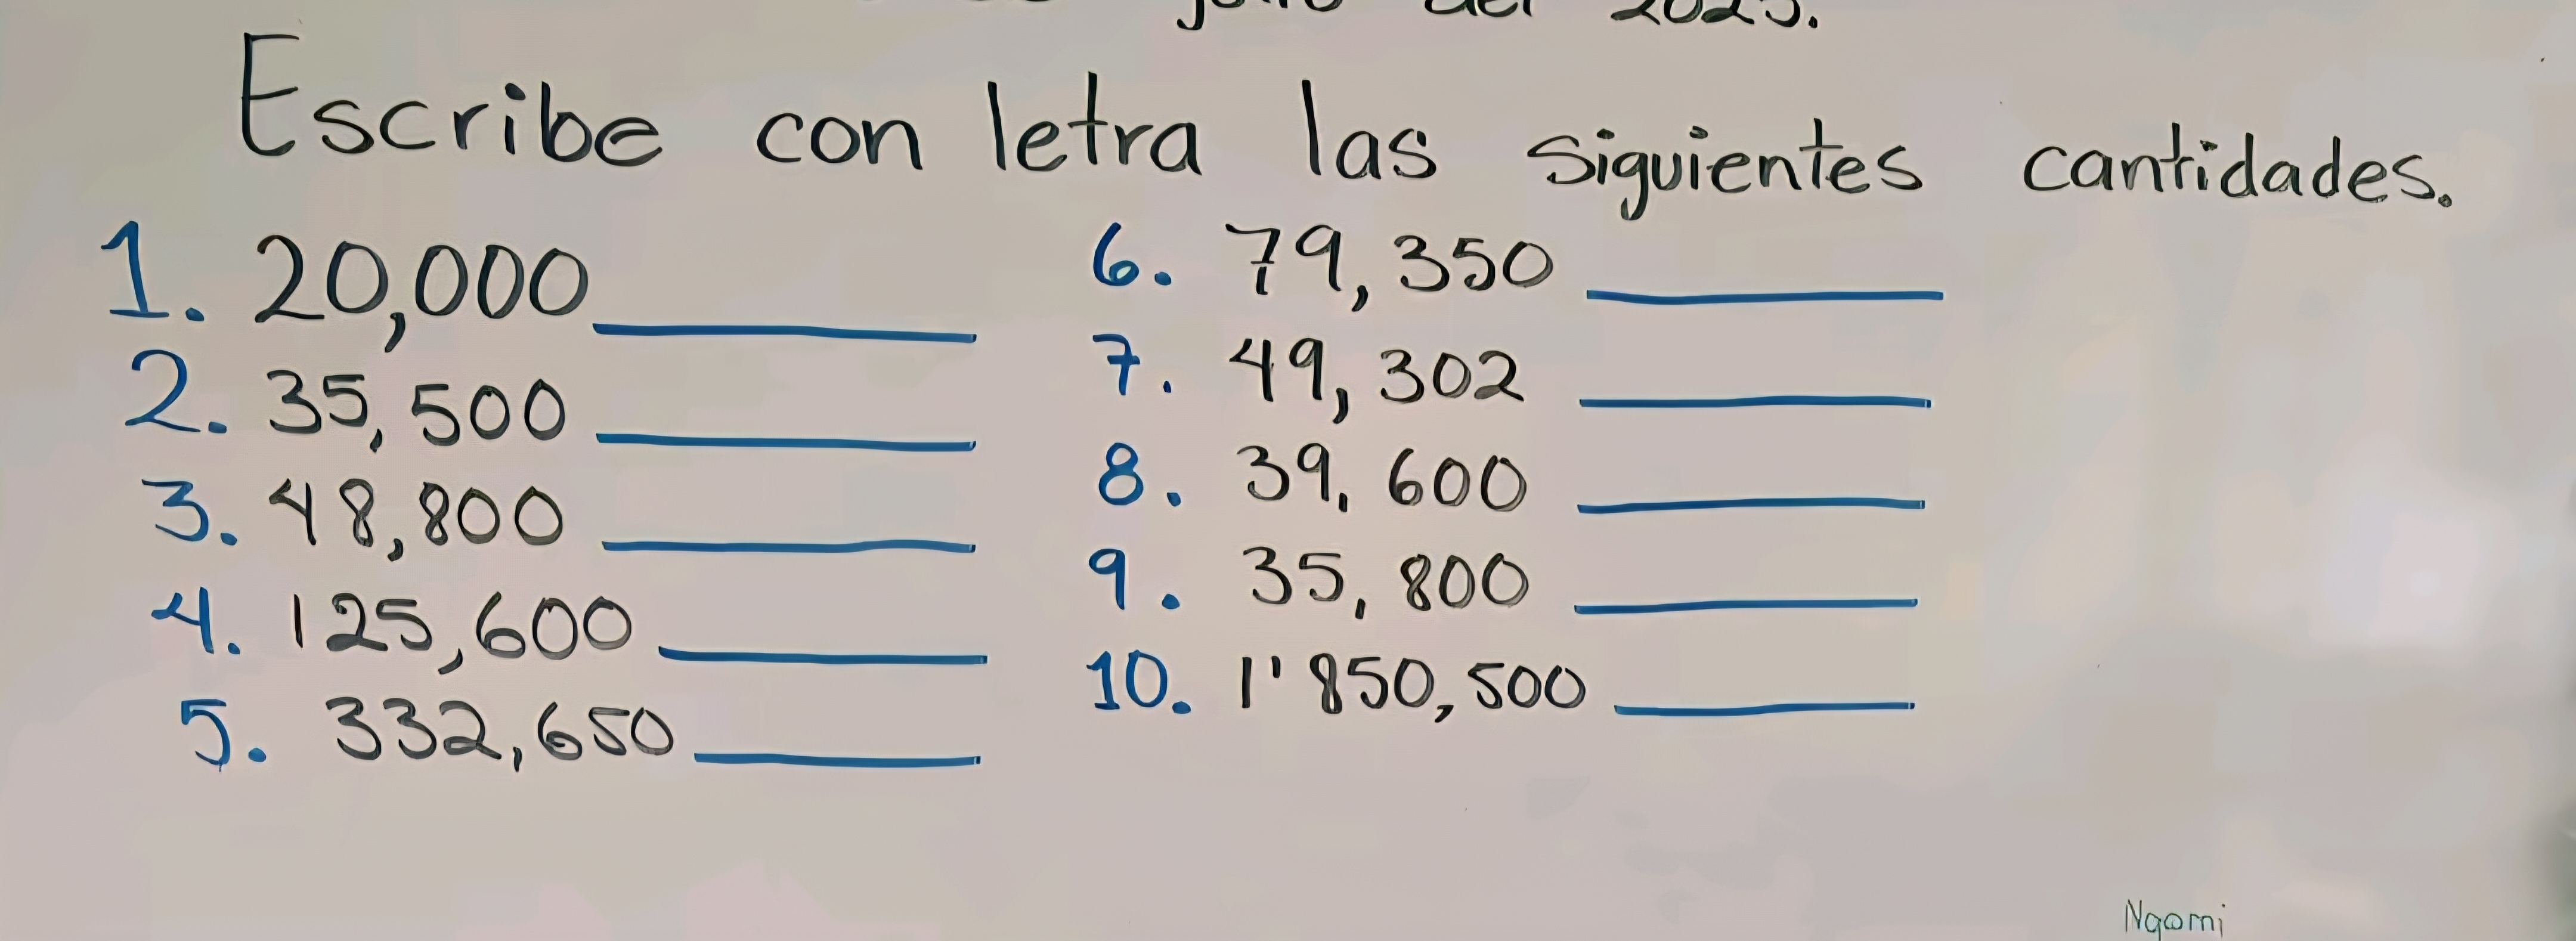 julio del 2025.
Escribe con letra las siguientes cantidades.
1. 20,000
2. 35,500
3. 48,800
4. 125,600
5. 332,650
6. 79,350
7. 49,302
8. 39,600
9. 35,800
10. 1'850,500